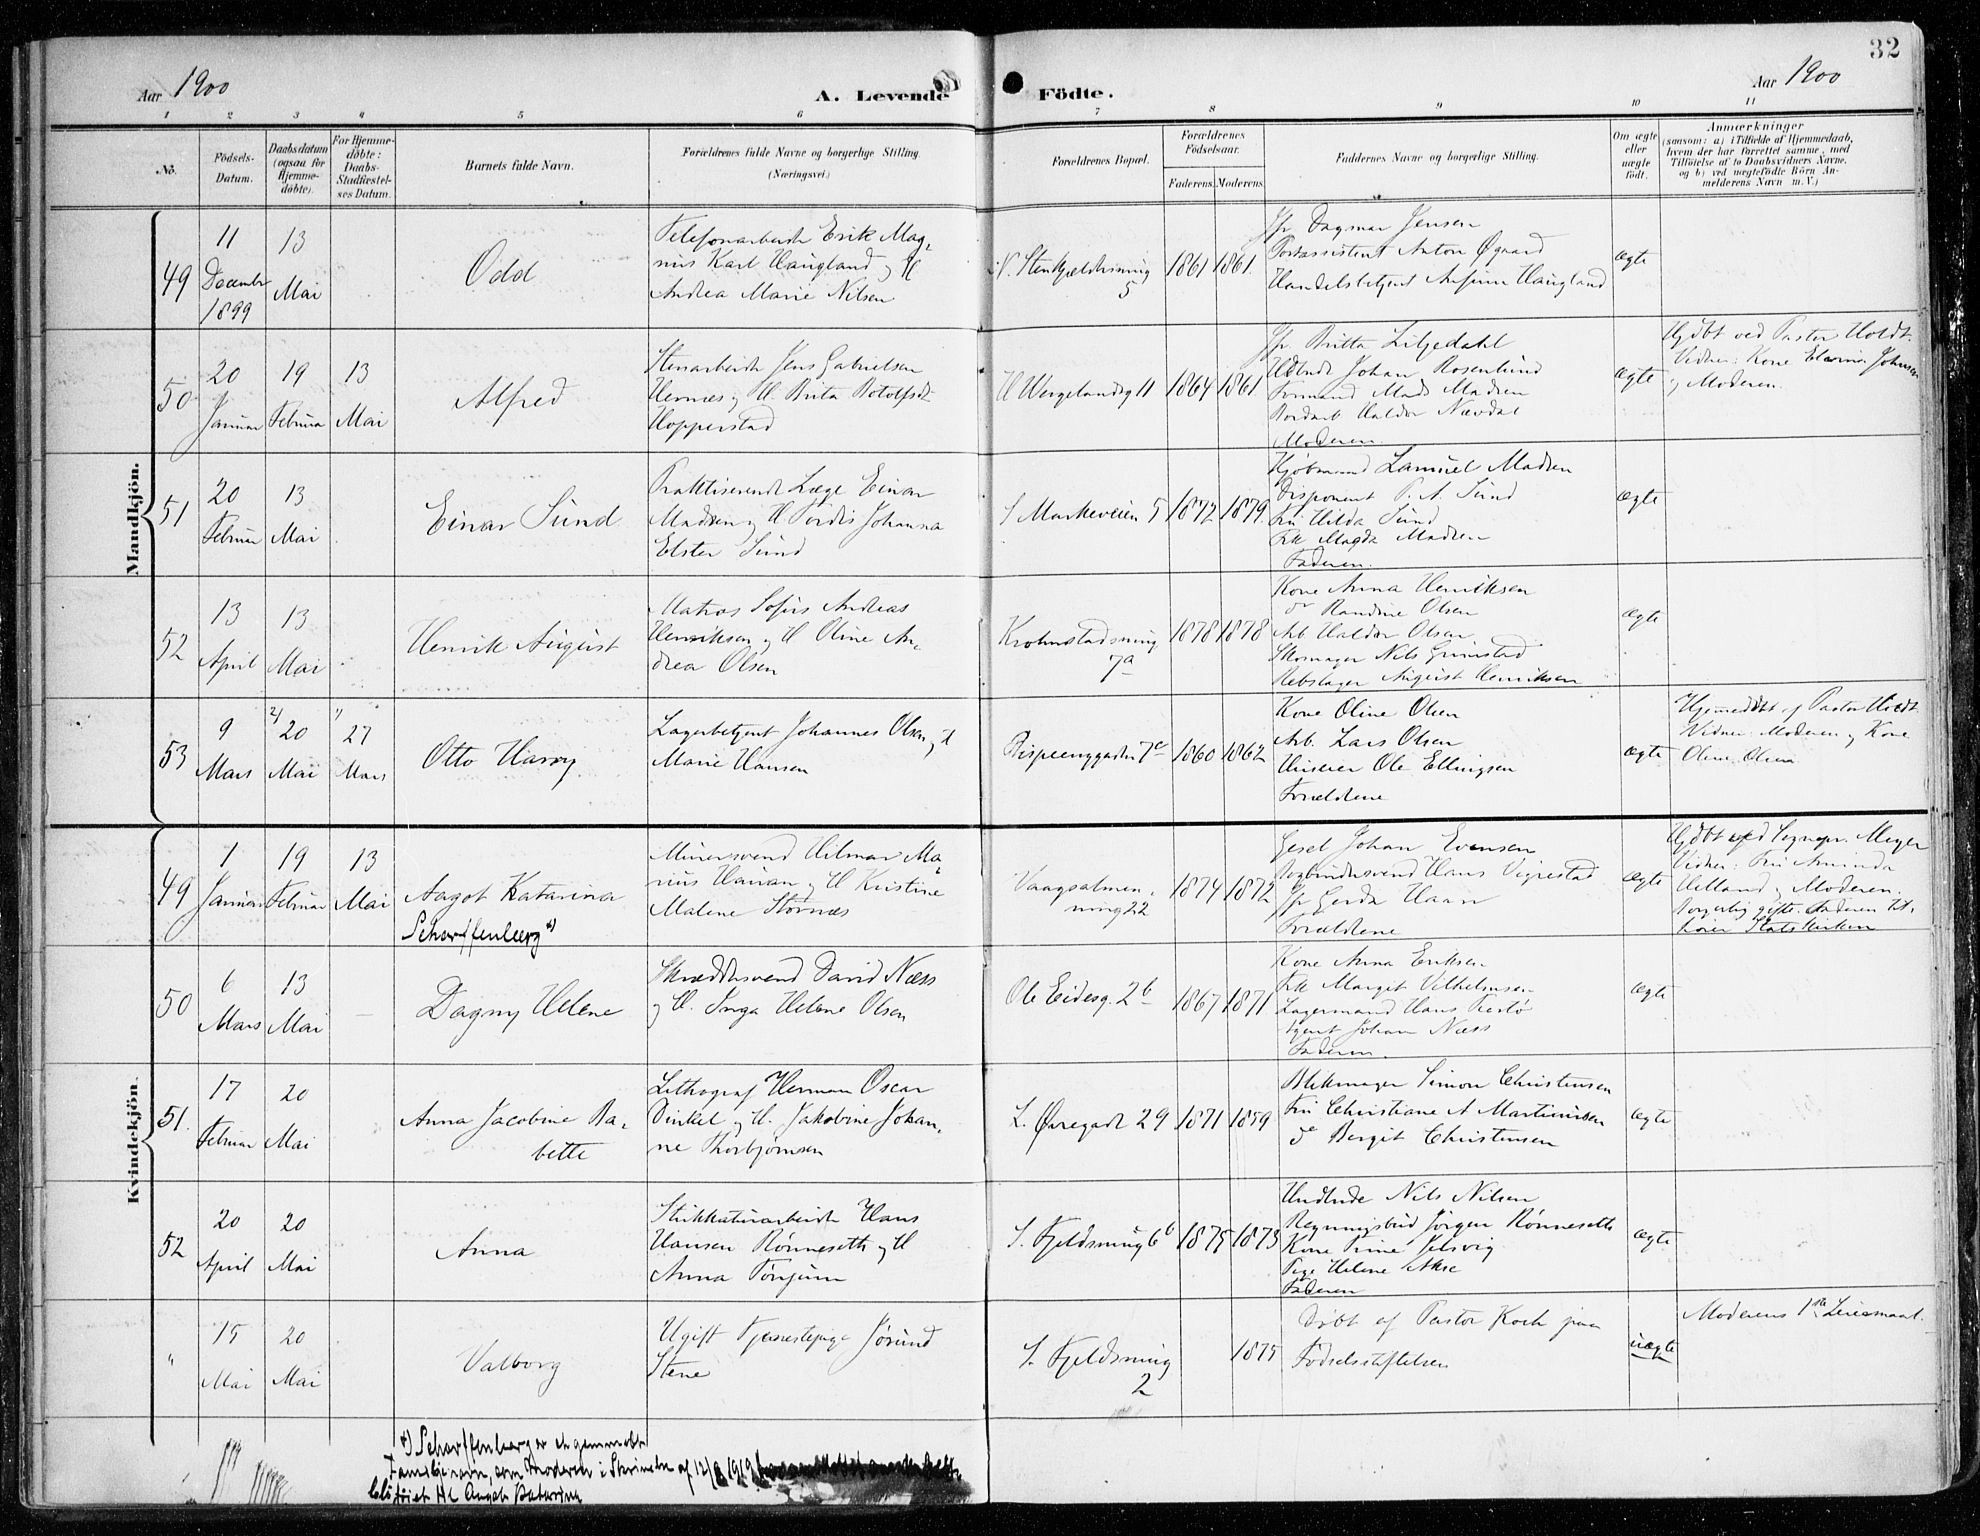 32
Aar 1900
A. Levende Födte.
Aar 1900
1 2 3 4 5 6 7 8 9 10 11
No.
Födsels-
Datum.
Daabsdatum
(ogsaa for
Hjemme-
döbte).
For Hjemme-
döbte:
Daabs-
Stadfæstel-
ses Datum.
Barnets fulde Navn.
Forældrenes fulde Navne og borgerlige Stilling.
(Næringsvei.)
Forældrenes Bopæl.
Forældrenes
Födselsaar.
Faderens. Moderens.
Faddernes Navne og borgerlige Stilling.
Om ægte
eller
uægte
födt.
Anmærkninger
(saasom: a) i Tilfælde af Hjemmedaab,
hvem der har forrettet samme, med
Tilföielse af to Daabsvidners Navne,
og b) ved uægtefödte Börn An-
melderens Navn m. V.)
Mandkjön.
49
11
December
1899
13
Mai
Odd
Telefonarbeider Erik Mag-
nus Karl Haugland og H
Andrea Marie Nilsen
N. Stenkjelderssmug
5
1861 1861
Jfr Dagmar Jensen
Postassistent Anton Øgaard
Handelsbetjent Haugland
ægte
50
20
Januar
19
Februar
13
Mai
Alfred
Stenarbeider Jens Gabrielsen
Hernæs og H. Brita Botolfsd
Hopperstad
H Wergelandsg 11
1864 1861
Jfr. Britta Liljedahl
Johan Rosenlund
Formand Mads Madsen
Haldor Nævdal
Moderen
ægte
Hjdbt ved Pastor Holdt.
Vidner: Kone Johnsen
og Moderen.
51
20
Februar
13
Mai
Einar Sund
Praktiserende Læge Einar
Madsen og H Tordis Johanna
Elster Sund
S Markeveien 5
1872 1879
Kjøbmand Samuel Madsen
Disponent P. A. Sund
Fru Hilda Sund
Frk Magda Madsen
Faderen.
ægte
52
13
April
13
Mai
Henrik August
Matros Sofus Andreas
Henriksen og H Oline An-
drea Olsen
Krohnstadsmug
7a
1878 1878
Kone Anna Henriksen
do Randine Olsen
Arb Haldor Olsen
Skomager Nils Grimstad
Rebslager August Henriksen
ægte
53
9
Mars
2) 20
Mai
1) 27
Mars
Otto Harry
Lagerbetjent Johannes Olsen og H
Marie Hansen
Bispeenggaden 7c
1860 1862
Kone Oline Olsen
Arb. Lars Olsen
Ole Ellingsen
Forældrene
ægte
Hjemmedøbt af Pastor Holdt
Vidner: Moderen og Kone
Oline Olsen
Kvindekjön.
49
1
Januar
19
Februar
13
Mai
Aagot Katarina
Scharffenberg *)
Murersvend Hilmar Ma-
rius Hauan og H Kristine
Malene Stornæs
Vaagsalmen-
ning 22
1874 1872
Gesel Johan Evensen
Bogbindersvend Hans Vigrestad
Jfr Gerda Haan
Forældrene
ægte
Hjdbt ved Sognepr. Meyer
Vidner: Fru
Helland og Moderen.
Borgerlig gifte. Faderen til-
hører Statskirken
50
6
Mars
13
Mai
Dagny Helene
Skræddersvend David Næss
og H. Inga Helene Olsen
Ole Eidesg. 2b
1867 1871
Kone Anna Eriksen
Frk Margit Vilhelmsen
Lagermand Hans
Agent Johan Næss
Faderen.
ægte
51.
17
Februar
20
Mai
Anna Jacobine Ba-
bette
Lithograf Herman Oscar
Dinkel og H. Jakobine Johan-
ne Thorbjørnsen
L. Øvregade 29
1871 1859
Blikmager Simon Christensen
Fru Christiane A Martinusen
do Bergit Christensen
ægte
52
20
April
20
Mai
Anna
Stukkaturarbeider Hans
Hansen Rønneseth og H
Anna Tønjum
S. Fjeldsmug 6b
1875 1873
Nils Nilsen
Regningsbud Jørgen Rønneseth
Kone Trine Jelsvig
Pige Helene Aase
Faderen
ægte
"
15
Mai
20
Mai
Valborg
Ugift Tjenestepige Jørund
Stene
S. Fjeldsmug
2
1875
Døbt af Pastor Koch paa
Fødselsstiftelsen
uægte
Moderens 1ste Leiermaal.
*) Scharffenberg er et gammelt
Familienavn, som Moderen i Skrivelse af 12/8 1919
tilføiet til Aagot Katarina